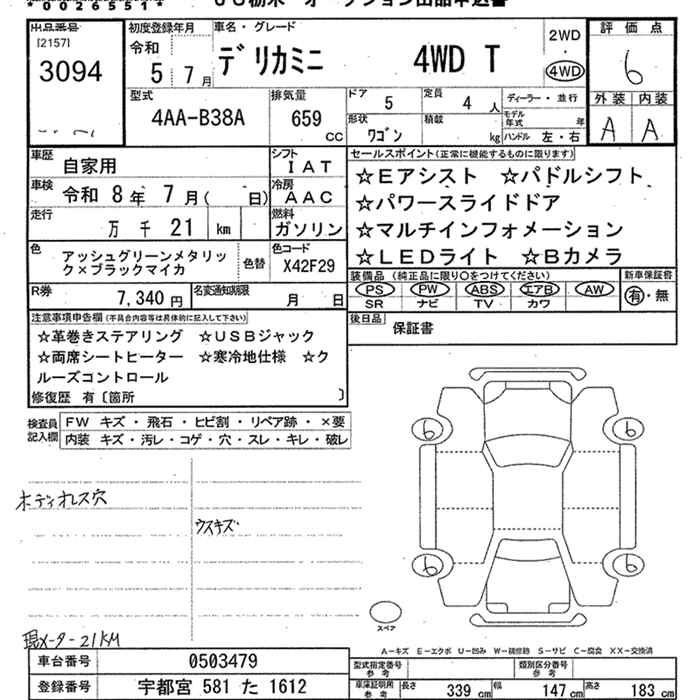 *0026551*
US栃木 オークション出品申込書
出品番号
[2157]
3094
初度登録年月
令和
5 7月
車名・グレード
デリカミニ 4WD T
2WD
・
4WD
評価点
6
外装 内装
A A
型式
4AA-B38A
排気量
659 CC
ドア 5
定員 4 人
ディーラー・並行
形状 ワゴン
積載 kg
モデル年式 年
ハンドル 左・右
車歴 自家用
シフト IAT
車検 令和 8年 7月( 日)
冷房 AAC
走行 万 千 21 km
燃料 ガソリン
色 アッシュグリーンメタリック×ブラックマイカ
色替
色コード X42F29
R券 7,340 円
名変通知期限 月 日
セールスポイント(正常に機能するものに限ります)
☆Eアシスト ☆パドルシフト
☆パワースライドドア
☆マルチインフォメーション
☆LEDライト ☆Bカメラ
装備品 (純正品に限り○をつけてください)
PS PW ABS エアB AW
SR ナビ TV カワ
新車保証書
有・無
後日品 保証書
注意事項申告欄(不具合内容等は具体的に記入して下さい)
☆革巻きステアリング ☆USBジャック
☆両席シートヒーター ☆寒冷地仕様 ☆ク
ルーズコントロール
修復歴 有〔箇所 〕
検査員記入欄
FW キズ・飛石・ヒビ割・リペア跡・×要
内装 キズ・汚レ・コゲ・穴・スレ・キレ・破レ
ウスキズ
6 6
6 6
スペア
現メーター21KM
A-キズ E-エクボ U-凹み W-補修跡 S-サビ C-腐食 XX-交換済
車台番号 0503479
登録番号 宇都宮 581 た 1612
型式指定番号 参考
類別区分番号 参考
車庫証明用 参考
長さ 339 cm 幅 147 cm 高さ 183 cm